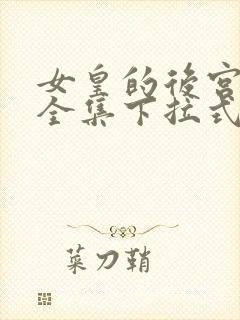 女皇的後宮
全集下拉式
菜刀鞘